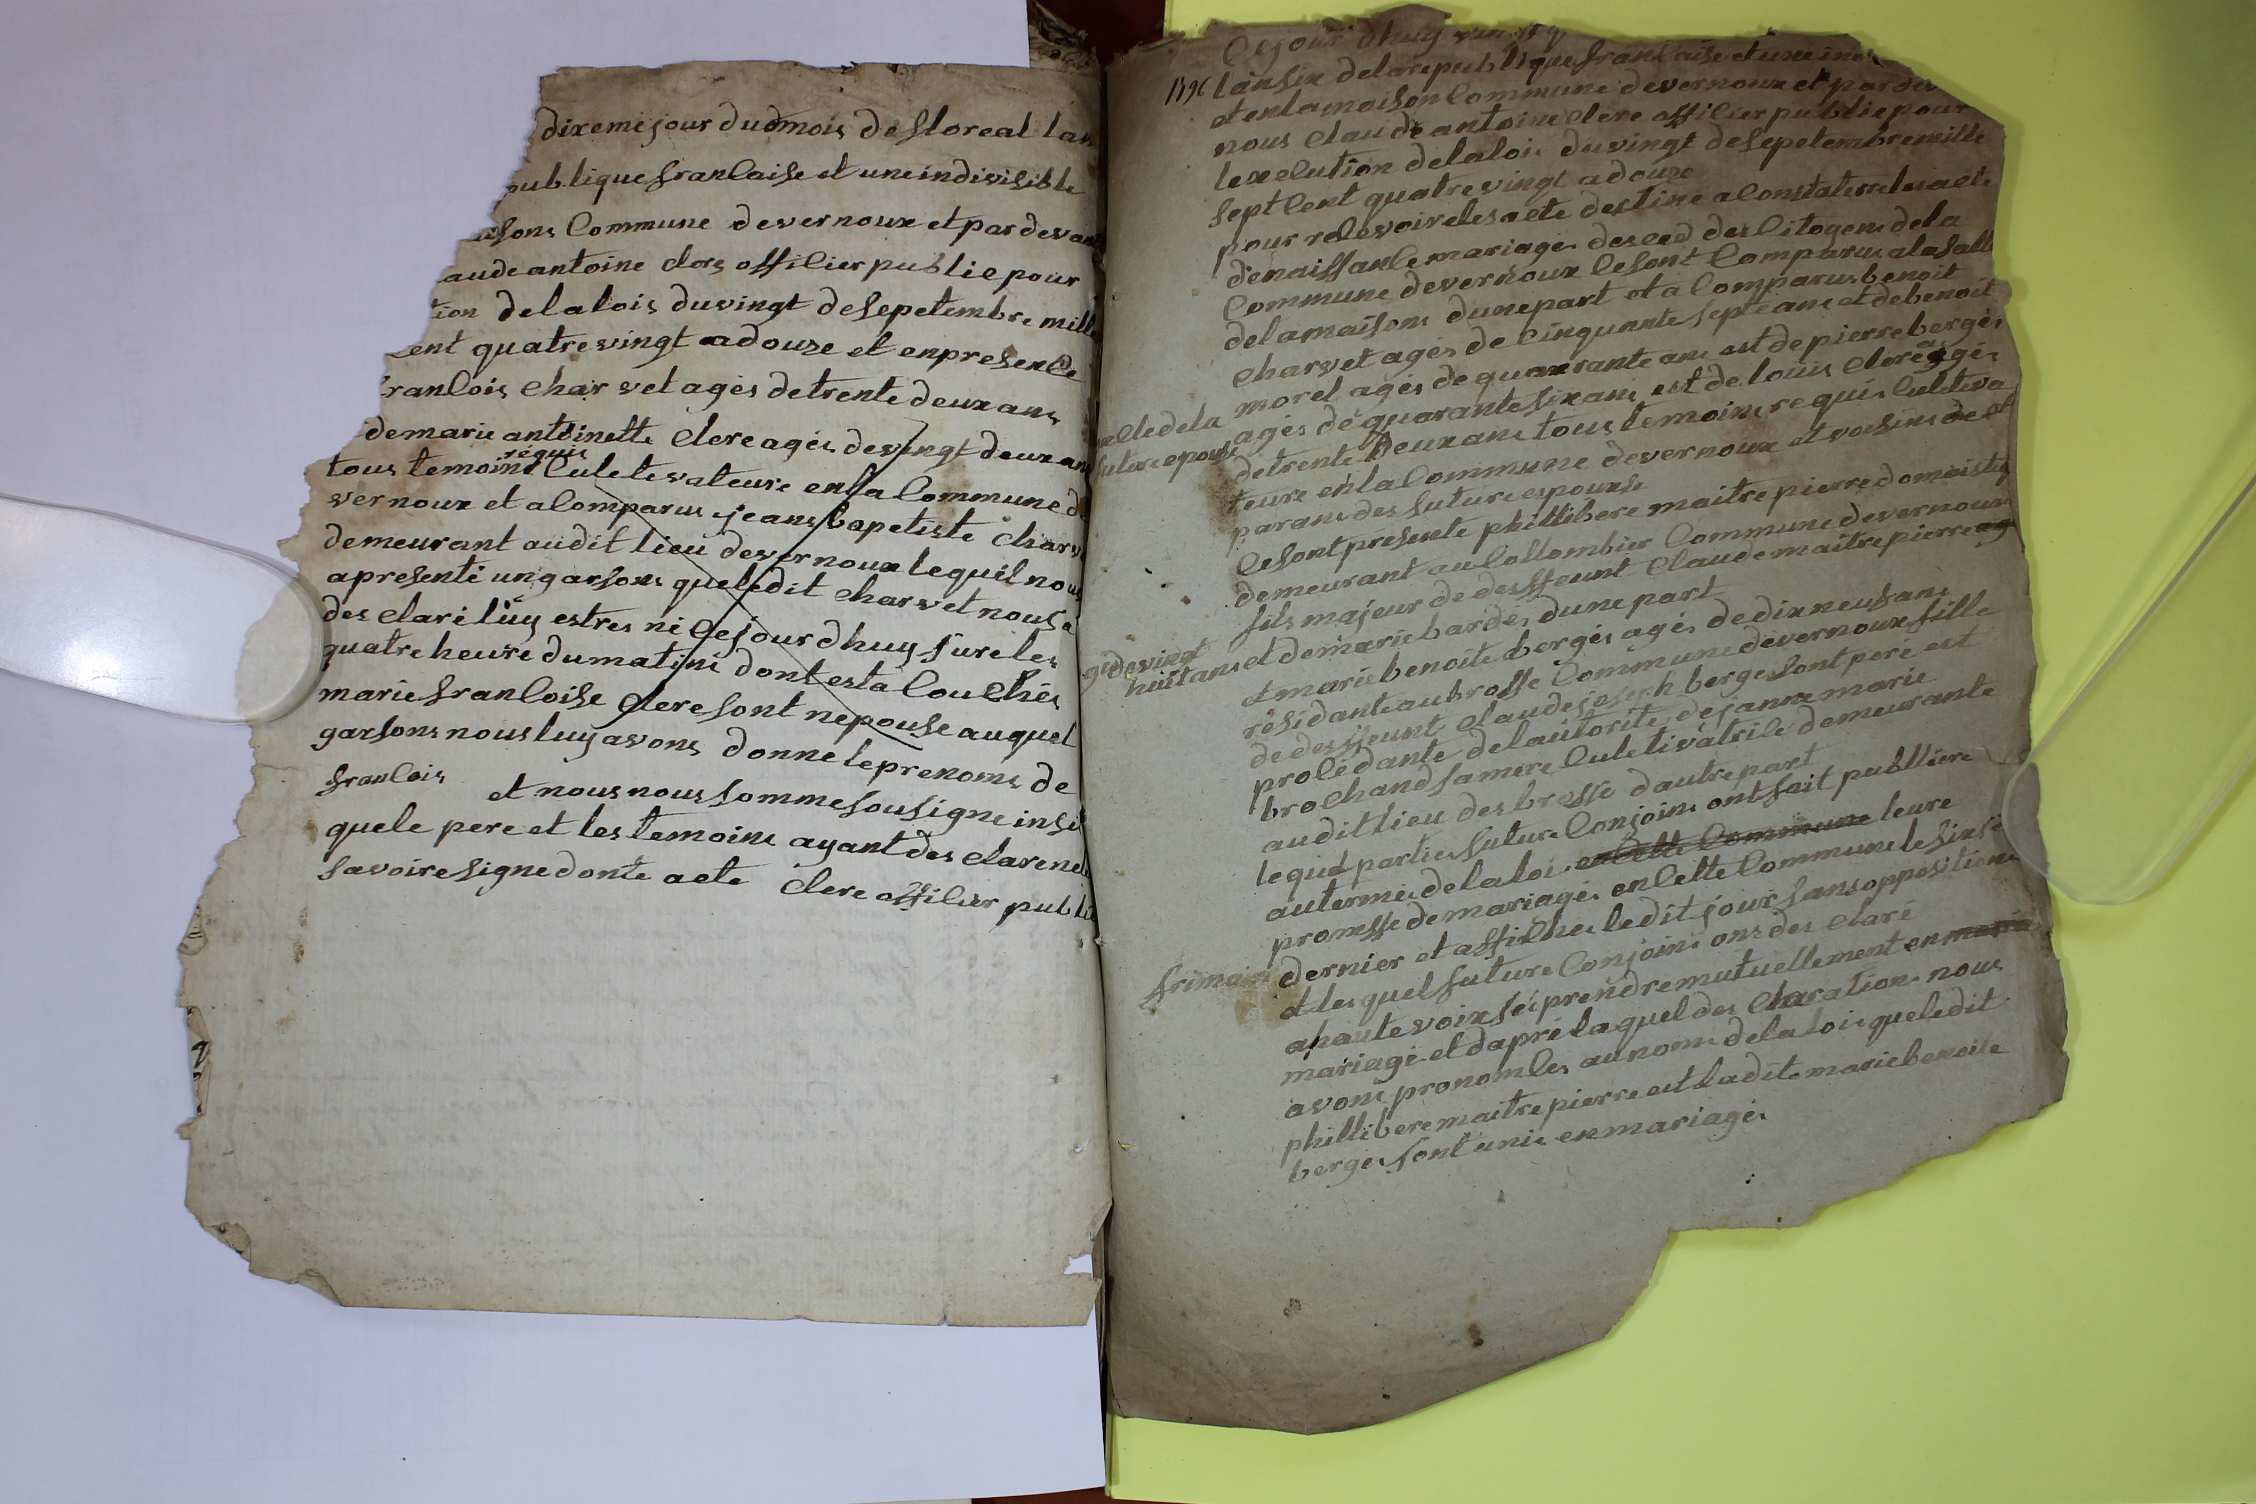 dixeme jour dudmois de floreal lan
publique francaise et une indivisible
aisons Commune de vernoux et par devant
aude antoine clerc officier publie pour
tion de la lois du vingt de sepetembre mille
cent quatre vingt adouze et enpresence
francois charvet agés de trente deux ans
de marie antoinette clerc agés de vingt deux ans
requis
tous temoins Culetivateure en la Commune de
vernoux et a Comparus jeans bapetiste charvet
demeurant audit lieu de vernoux lequil nous
apresenté un garsons quele dit charvet nous a
des claré luy estres né Cejour dhuy sure les
quatre heure du matins dont esta Couchés
marie francoise clere sont nepouse auquel
garsons nous luy avons donne le prenoms de
francois et nous nous somme sousigne insi
quele pere et les temoins ayant des clare ne
savoire signe donte acte clere officier publi
Cejour dhuy
1796 lan six de la republique francaise et une in
et en la maison Commune de vernoux et par dev
nous claude antoine clerc officier publie pour
lexecution de la lois du vingt de sepetembre mille
sept Cent quatre vingt adouze
pour recevoire les acte destiné a Constaterre les acte
de naissance mariages desced des Citogens de la
Commune de vernoux Cesont Comparus ala salle
de la maisons dune part et a Comparus benoit
charvet agés de Cinquante septe ans et de benoit
morel agés de quarante ans est de pierre berges
agés de quarante six ans est de loüis clerc agés
acte de la
future epouse
de trente deux ans tous temoins requis Culetiva
teure en la Commune de vernoux et voisins de et
parans des future espouse
Cesont presenté phillibere maitre pierre domaistiq
demeurant au Collombier Commune de vernoux
fils majeur de deffeunt claude maitre pierre ag
gé de vingt
huit ans et de marie bardes dune part
et marie benoite bergés agés de dix neuf ans
residante au brosse Commune de vernoux fille
de deffeunt claude joseph berge sont pere est
procédante de lautorite de janne marie
brochand sa mere Culetivatrice demeurante
audit lieu des brosse dautre part
lequel parties future Conjoins ont fait publiere
au termes de la loi en Cette Commune leure
promesse de mariages en Cette Commune le sinse
frimaire dernier et affiches ledit jour sans oppositions
et les quel future Conjoins ons des claré
a haute voix sé prendre mutuellement en maria
mariage et dapré laquel des claration nous
avons prononces au noms de la loi que le dit
phillibere maitre pierre est la dite marie benoite
berges sont unis en mariages